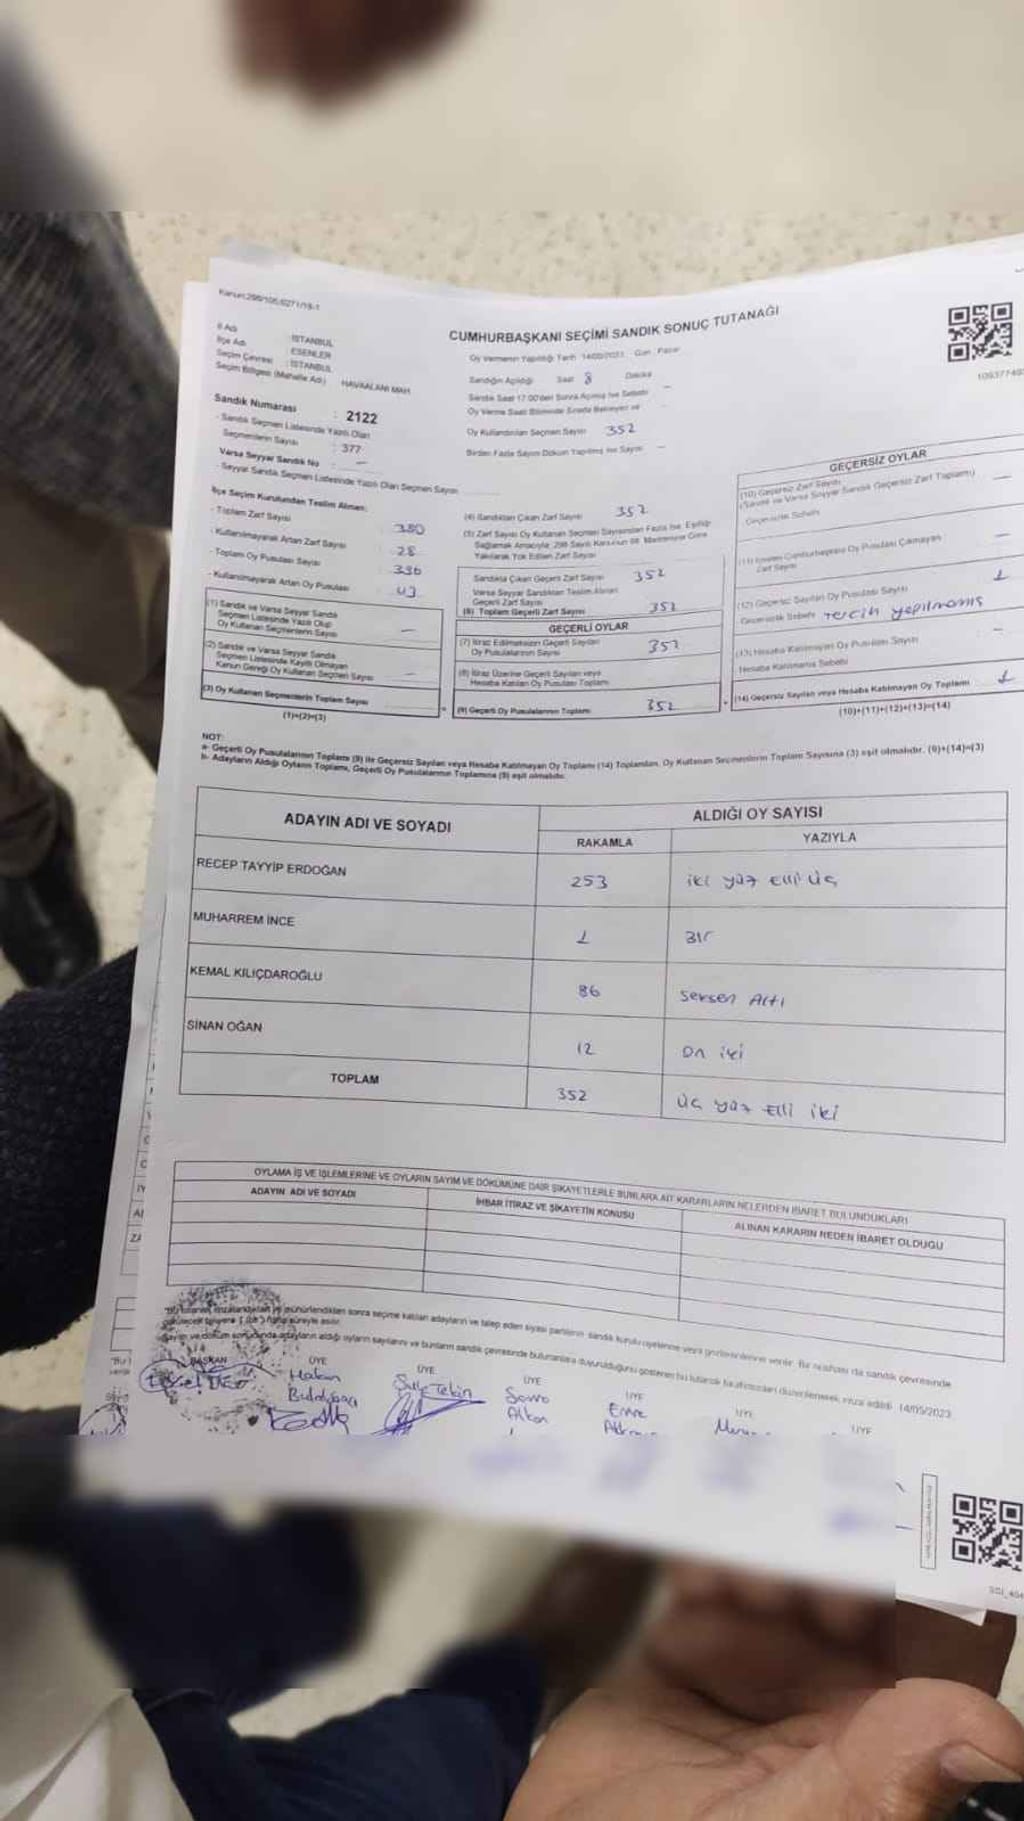 Kanun:298/105,6271/19-1
CUMHURBAŞKANI SEÇİMİ SANDIK SONUÇ TUTANAĞI
İl Adı : İSTANBUL
İlçe Adı : ESENLER
Seçim Çevresi : İSTANBUL
Seçim Bölgesi (Mahalle Adı) HAVAALANI MAH.
Sandık Numarası : 2122
- Sandık Seçmen Listesinde Yazılı Olan
Seçmenlerin Sayısı : 377
Varsa Seyyar Sandık No : —
- Seyyar Sandık Seçmen Listesinde Yazılı Olan Seçmen Sayısı
Oy Vermenin Yapıldığı Tarih 14/05/2023 Gün : Pazar
Sandığın Açıldığı Saat 8 Dakika
Sandık Saat 17:00'den Sonra Açılmış İse Sebebi —
Oy Verme Saati Bitiminde Sırada Bekleyen
Oy Kullandırılan Seçmen Sayısı 352
Birden Fazla Sayım Döküm Yapılmış İse Sayısı —
İlçe Seçim Kurulundan Teslim Alınan:
- Toplam Zarf Sayısı : 380
- Kullanılmayarak Artan Zarf Sayısı : 28
- Toplam Oy Pusulası Sayısı
- Kullanılmayarak Artan Oy Pusulası : 43
(1) Sandık ve Varsa Seyyar Sandık
Seçmen Listesinde Yazılı Olup
Oy Kullanan Seçmenlerin Sayısı —
(2) Sandık ve Varsa Seyyar Sandık
Seçmen Listesinde Kayıtlı Olmayan
Kanun Gereği Oy Kullanan Seçmen Sayısı —
(3) Oy Kullanan Seçmenlerin Toplam Sayısı
(1)+(2)=(3)
(4) Sandıktan Çıkan Zarf Sayısı 352
(5) Zarf Sayısı Oy Kullanan Seçmen Sayısından Fazla İse, Eşitliği
Sağlamak Amacıyla, 298 Sayılı Kanunun 98. Maddesine Göre
Yakılarak Yok Edilen Zarf Sayısı
Sandıkta Çıkan Geçerli Zarf Sayısı 352
Varsa Seyyar Sandıktan Teslim Alınan
Geçerli Zarf Sayısı
(6) Toplam Geçerli Zarf Sayısı 352
GEÇERLİ OYLAR
(7) İtiraz Edilmeksizin Geçerli Sayılan
Oy Pusulalarının Sayısı 352
(8) İtiraz Üzerine Geçerli Sayılan veya
Hesaba Katılan Oy Pusulası Toplamı
(9) Geçerli Oy Pusulalarının Toplamı 352
GEÇERSİZ OYLAR
(10) Geçersiz Zarf Sayısı
(Sandık ve Varsa Seyyar Sandık Geçersiz Zarf Toplamı) —
Geçersizlik Sebebi
Cumhurbaşkanı Oy Pusulası Çıkmayan
Zarf Sayısı —
(12) Geçersiz Sayılan Oy Pusulası Sayısı 1
Geçersizlik Sebebi tercih yapılmamış
(13) Hesaba Katılmayan Oy Pusulası Sayısı —
Hesaba Katılmama Sebebi
(14) Geçersiz Sayılan veya Hesaba Katılmayan Oy Toplamı 1
(10)+(11)+(12)+(13)=(14)
NOT:
a- Geçerli Oy Pusulalarının Toplamı (9) ile Geçersiz Sayılan veya Hesaba Katılmayan Oy Toplamı (14) Toplamları, Oy Kullanan Seçmenlerin Toplam Sayısına (3) eşit olmalıdır. (9)+(14)=(3)
b- Adayların Aldığı Oyların Toplamı, Geçerli Oy Pusulalarının Toplamına (9) eşit olmalıdır.
ADAYIN ADI VE SOYADI ALDIĞI OY SAYISI
RAKAMLA YAZIYLA
RECEP TAYYİP ERDOĞAN 253 iki yüz elli üç
MUHARREM İNCE 1 Bir
KEMAL KILIÇDAROĞLU 86 Seksen Altı
SİNAN OĞAN 12 On iki
TOPLAM 352 Üç yüz elli iki
OYLAMA İŞ VE İŞLEMLERİNE VE OYLARIN SAYIM VE DÖKÜMÜNE DAİR ŞİKAYETLERLE BUNLARA AİT KARARLARIN NELERDEN İBARET BULUNDUKLARI
ADAYIN ADI VE SOYADI İHBAR İTİRAZ VE ŞİKAYETİN KONUSU ALINAN KARARIN NEDEN İBARET OLDUĞU
mühürlendikten sonra seçime katılan adayların ve talep eden siyasi partilerin sandık kurulu üyelerine veya gözlemcilerine verilir. Bir nüshası da sandık çevresinde
süreyle asılır.
Sayım ve döküm sonucunda adayların aldığı oyların sayılarını ve bunların sandık çevresinde bulunanlara duyurulduğunu gösteren bu tutanak tarafımızdan düzenlenerek imza edildi. 14/05/2023
BAŞKAN ÜYE ÜYE ÜYE ÜYE ÜYE ÜYE
Hakan
Tekin
Emre